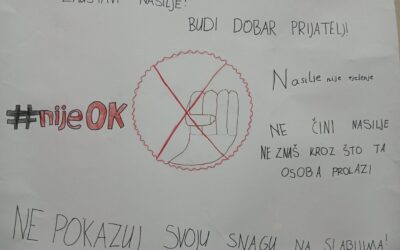 ZAUSTAVI NASILJE!
BUDI DOBAR PRIJATELJ!
Nasilje nije rješenje
#nijeOK
NE ČINI NASILJE
NE ZNAŠ KROZ ŠTO TA
OSOBA PROLAZI
NE POKAZUJ SVOJU SNAGU NA SLABIJIMA!